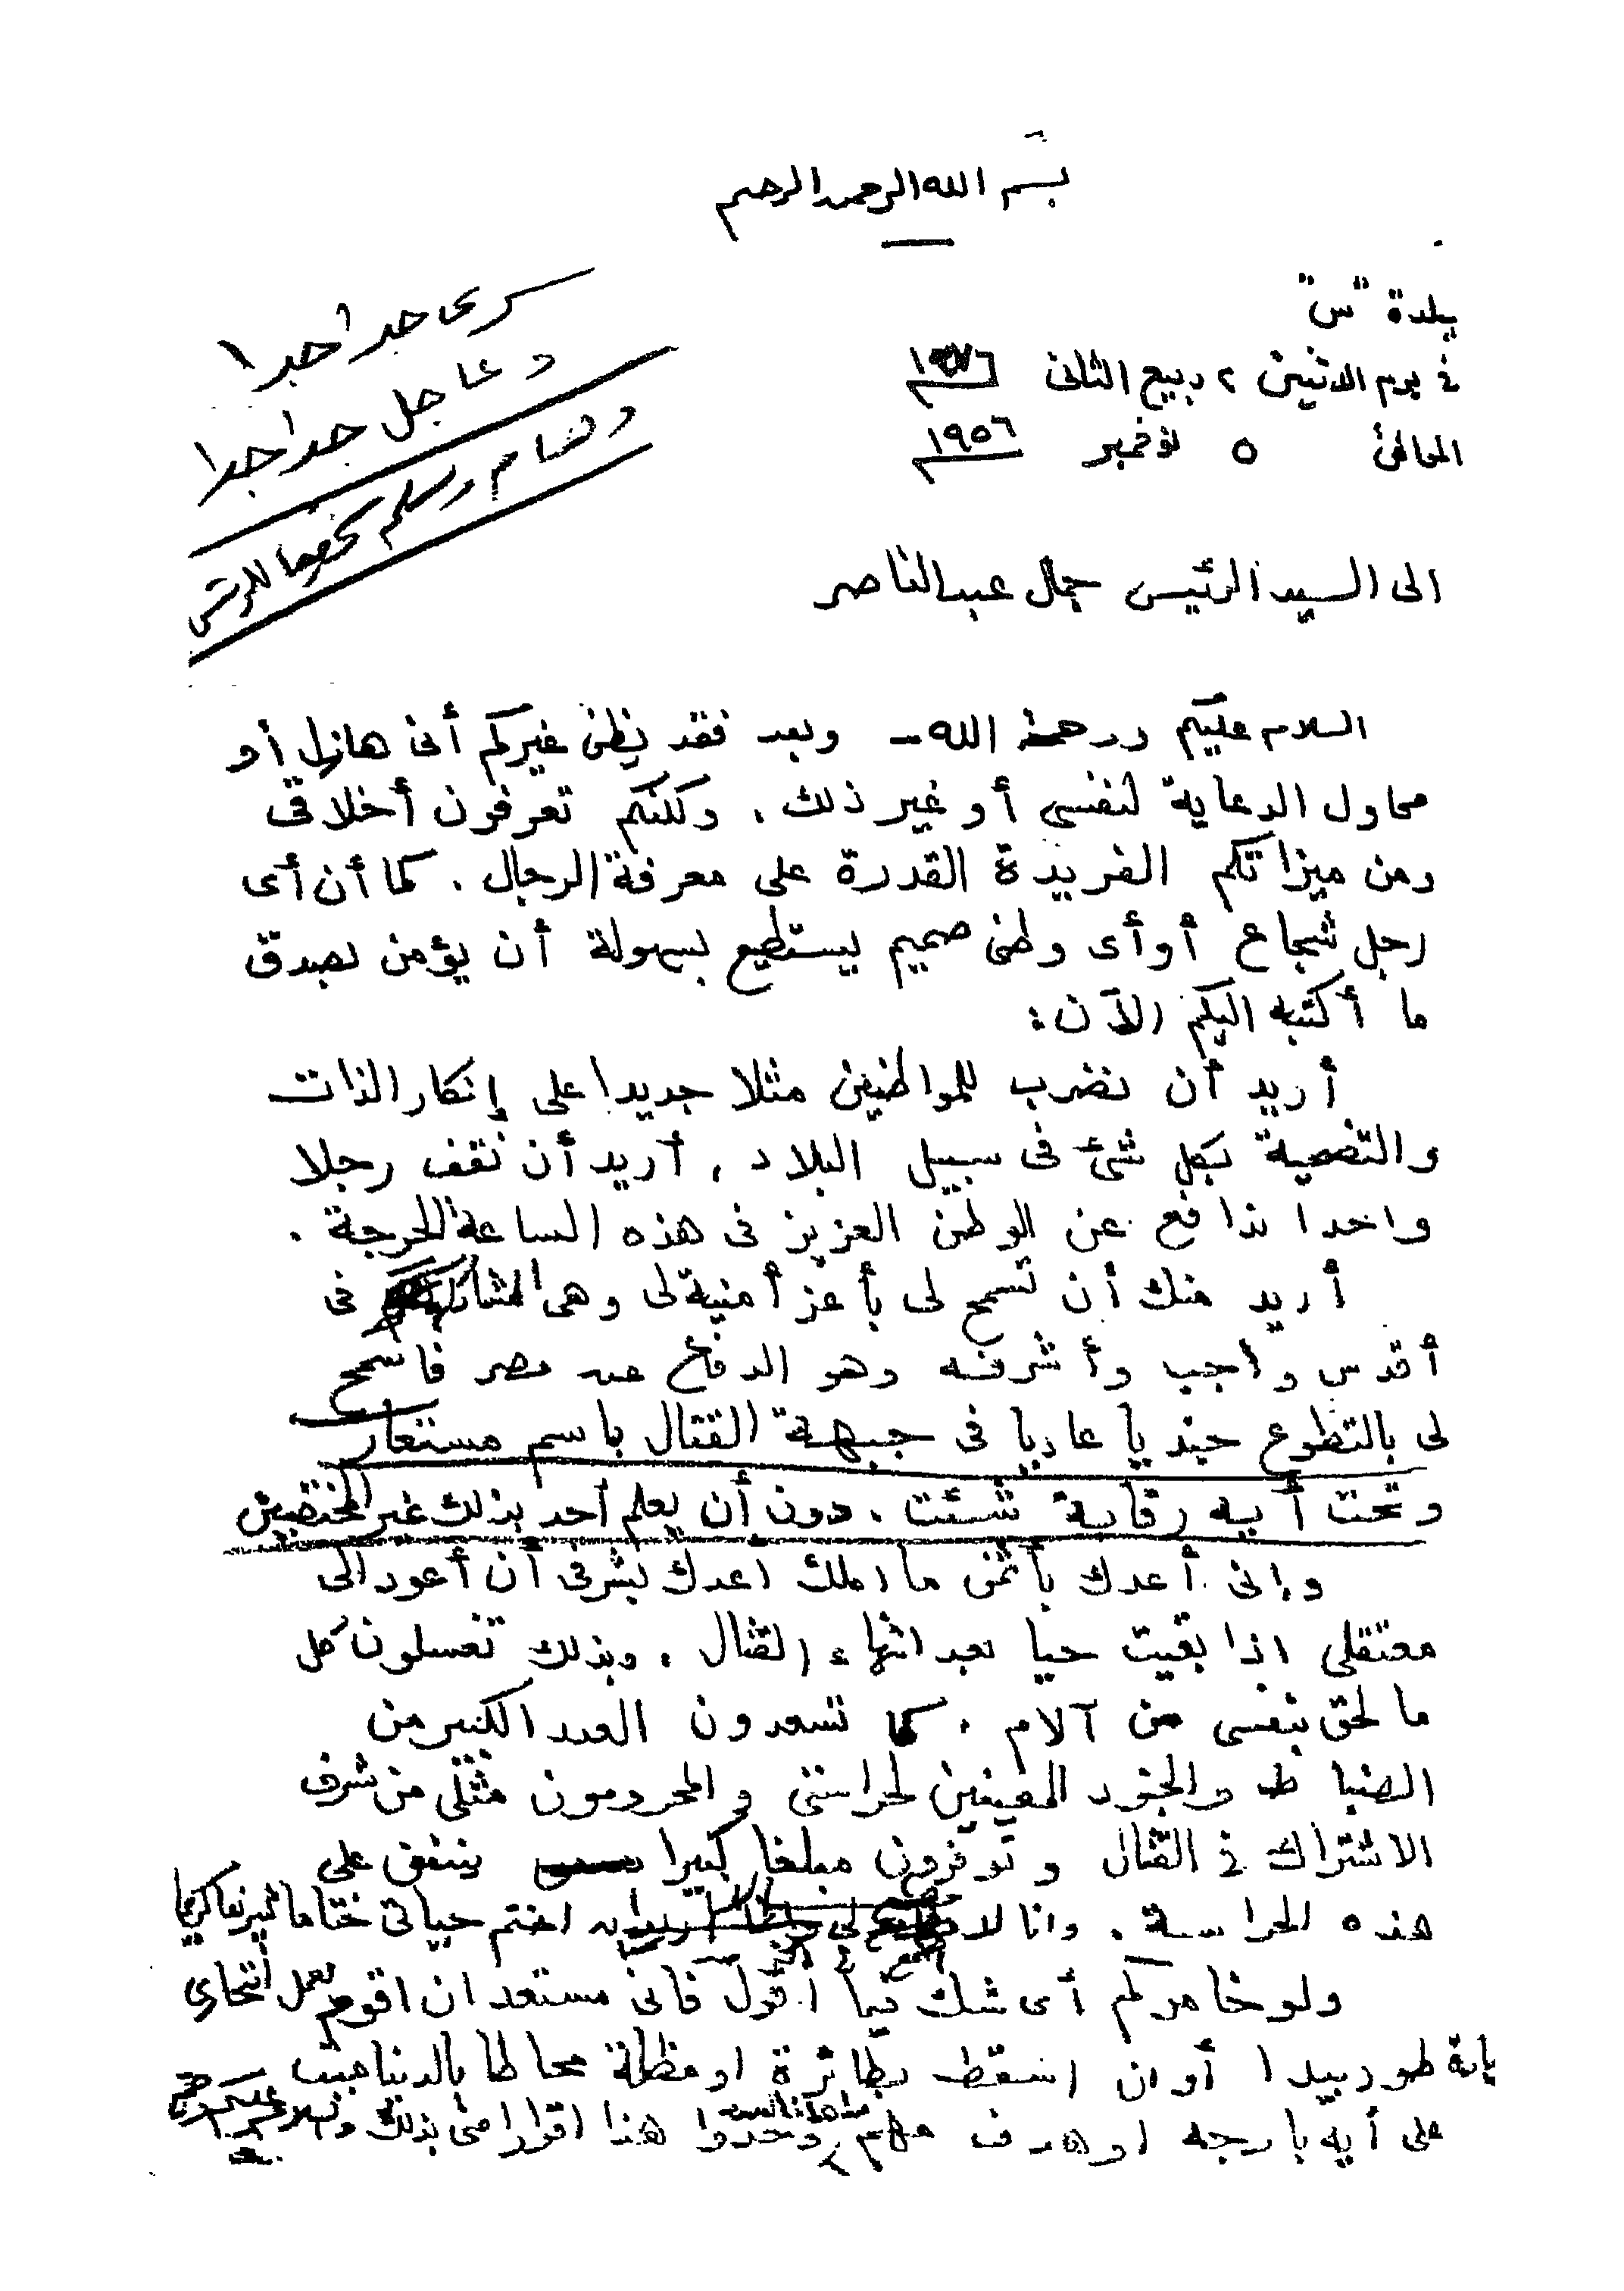 بسم الله الرحمن الرحيم
بلدة "س"
سرى جدا جدا
فى يوم الاثنين ٢ ربيع الثانى ١٣٧٦
وعاجل جدا جدا
الموافق ٥ نوفمبر ١٩٥٦
وهام ويسلم شخصيا للرئيس
الى السيد الرئيس جمال عبد الناصر
السلام عليكم ورحمة الله - وبعد فقد يظن غيركم أنى هازل أو
محاول الدعاية لنفسى أو غير ذلك . ولكنكم تعرفون أخلاقى
ومن ميزاتكم الفريدة القدرة على معرفة الرجال . كما أن أى
رجل شجاع أو أى وطنى صميم يستطيع بسهولة أن يؤمن بصدق
ما أكتبه اليكم الآن :
أريد أن نضرب للمواطنين مثلا جديدا على إنكار الذات
والتضحية بكل شئ فى سبيل البلاد ، أريد أن نقف رجلا
واحدا ندافع عن الوطن العزيز فى هذه الساعة الحرجة .
أريد منك أن تسمح لى بأعز أمنية لى وهى المشاركة فى
أقدس واجب وأشرفه وهو الدفاع عن مصر فاسمح
لى بالتطوع جنديا عاديا فى جبهة القتال باسم مستعار
وتحت أية رقابة شئت . دون أن يعلم أحد بذلك غير المختصين
وإنى أعدك بأثمن ما املك اعدك بشرفى أن أعود الى
معتقلى اذا بقيت حيا بعد انتهاء القتال . وبذلك تغسلون كل
ما لحق بنفسى من آلام . كما تسعدون العدد الكبير من
الضباط والجنود المعينين لحراستى والمحرومون مثلى من شرف
الاشتراك فى القتال وتوفرون مبلغا كبيرا ينفق على
هذه الحراسة . وانا لا لى الا ان اختم حياتى ختاما شريفا كريما
ولو خامركم أى شك فيما أقول فانى مستعد ان اقوم بعمل انتحارى
طوربيدا أو ان اسقط بطائرة او مظلة محاطا بالديناميت
على أيه بارجه او هدف مهم وهذا اقرار منى بذلك والسلام عليكم